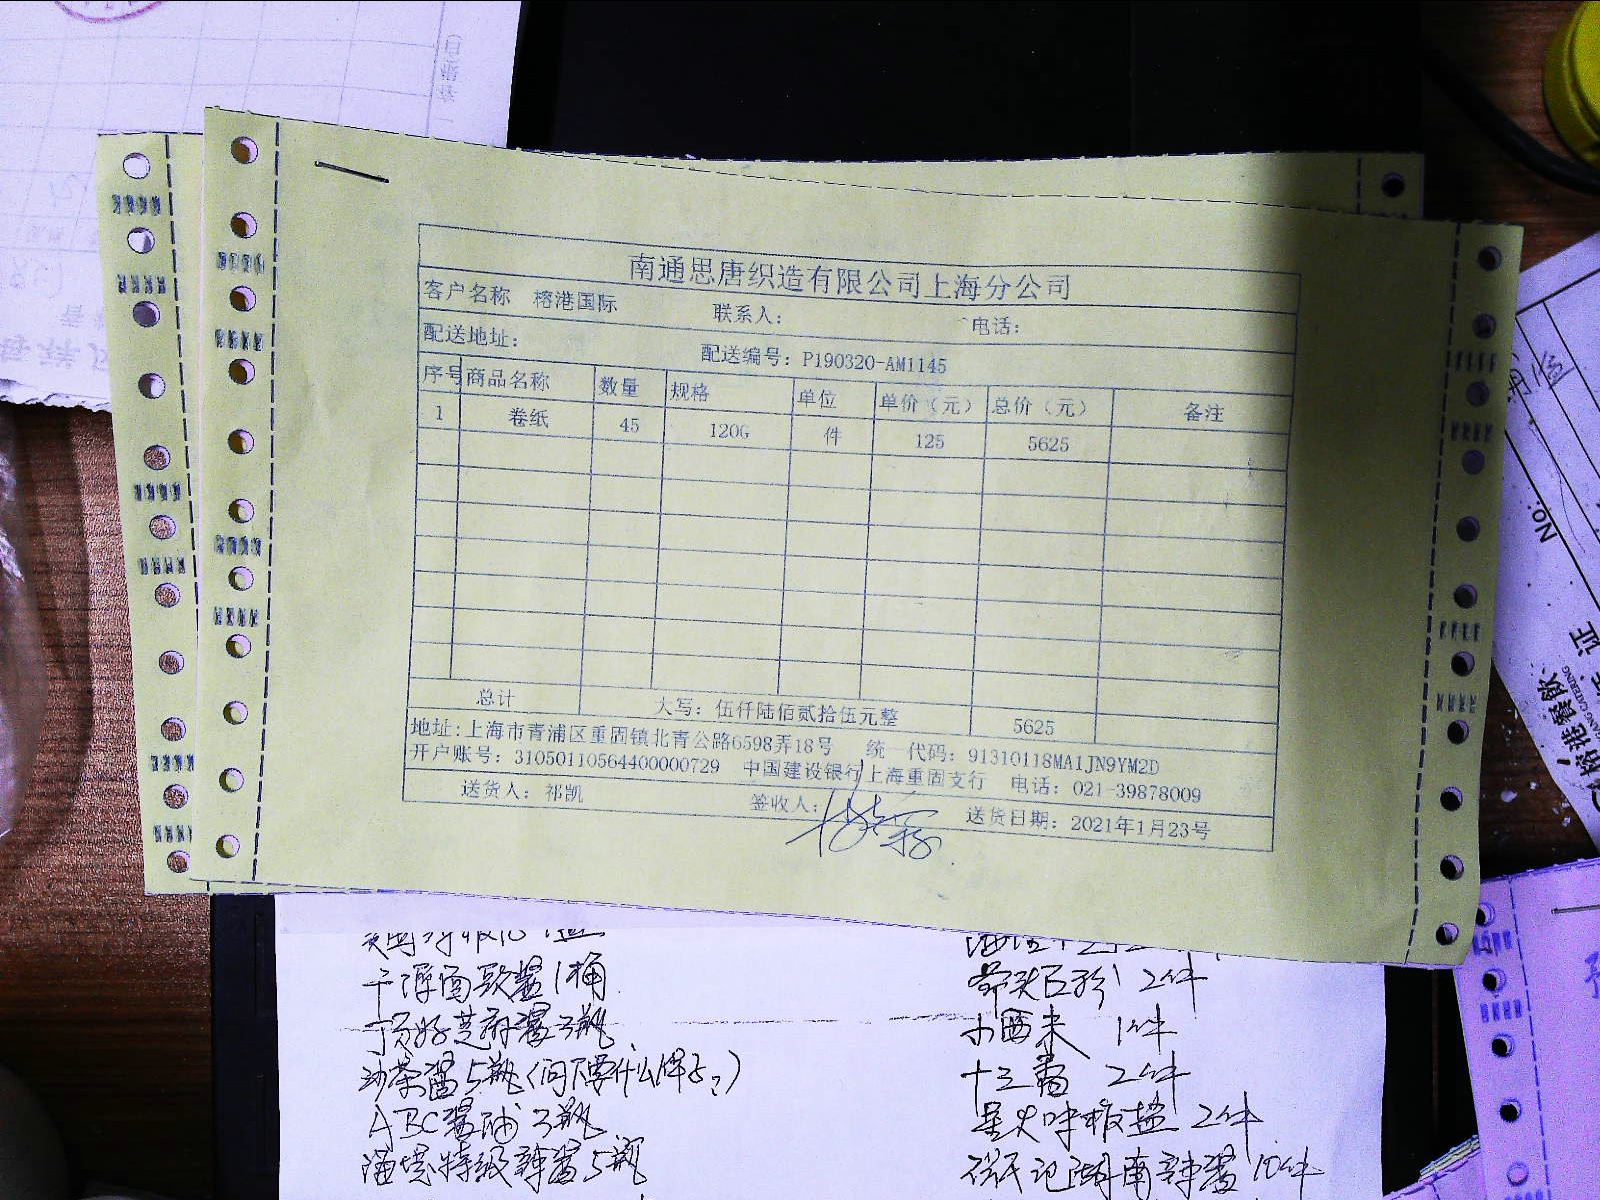 南通思唐织造有限公司上海分公司
客户名称 榕港国际 联系人： 电话：
配送地址： 配送编号：P190320-AM1145
序号 商品名称 数量 规格 单位 单价（元） 总价（元） 备注
1 卷纸 45 120G 件 125 5625
总计 大写：伍仟陆佰贰拾伍元整 5625
地址：上海市青浦区重固镇北青公路6598弄18号 统一代码：91310118MA1JN9YM2D
开户账号：31050110564400000729 中国建设银行上海重固支行 电话：021-39878009
送货人：祁凯 签收人： 送货日期：2021年1月23号
No:
1桶
2件
顶好芝麻酱3瓶
小西米 1件
沙茶酱5瓶（问下要什么牌子？）
十三香 2件
ABC酱油3瓶
2件
特级辣酱5瓶
湖南辣酱10件